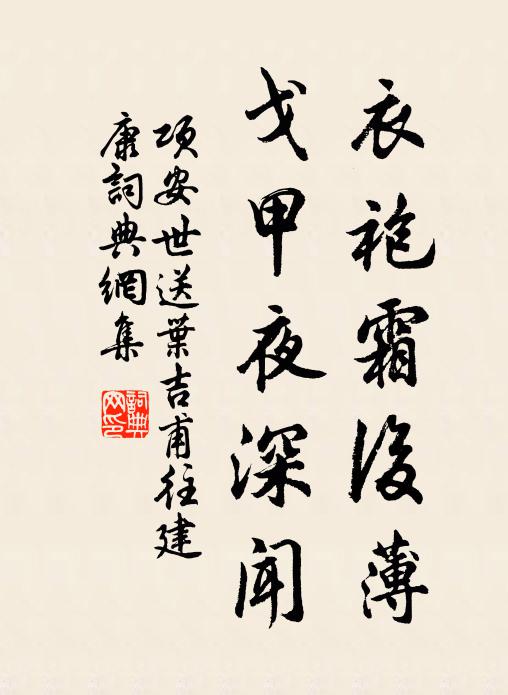 衣袍霜後薄
戈甲夜深聞
項安世送葉吉甫往建
康詞典網集
詞典
网印